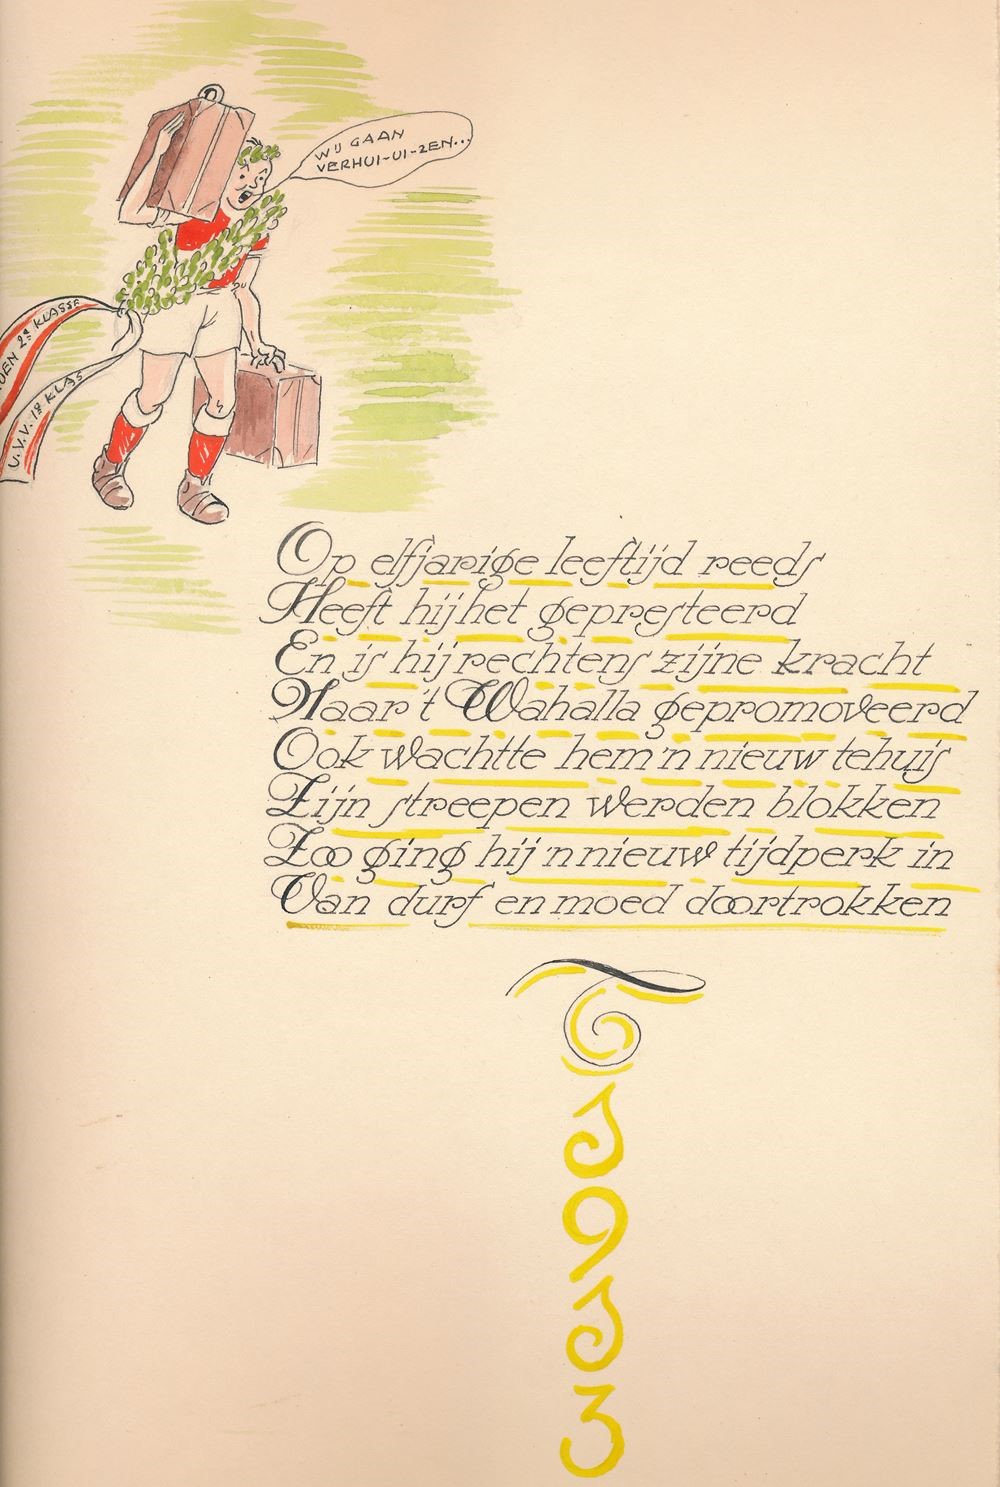 WIJ GAAN
VERHUI-UI-ZEN...
DEN 2e KLASSE
U.V.V. 1e KLAS
Op elfjarige leeftijd reeds
Heeft hij het gepresteerd
En is hij rechtens zijne kracht
Naar 't Wahalla gepromoveerd
Ook wachtte hem 'n nieuw tehuis
Zijn streepen werden blokken
Zoo ging hij 'n nieuw tijdperk in
Van durf en moed doortrokken
1
9
1
3